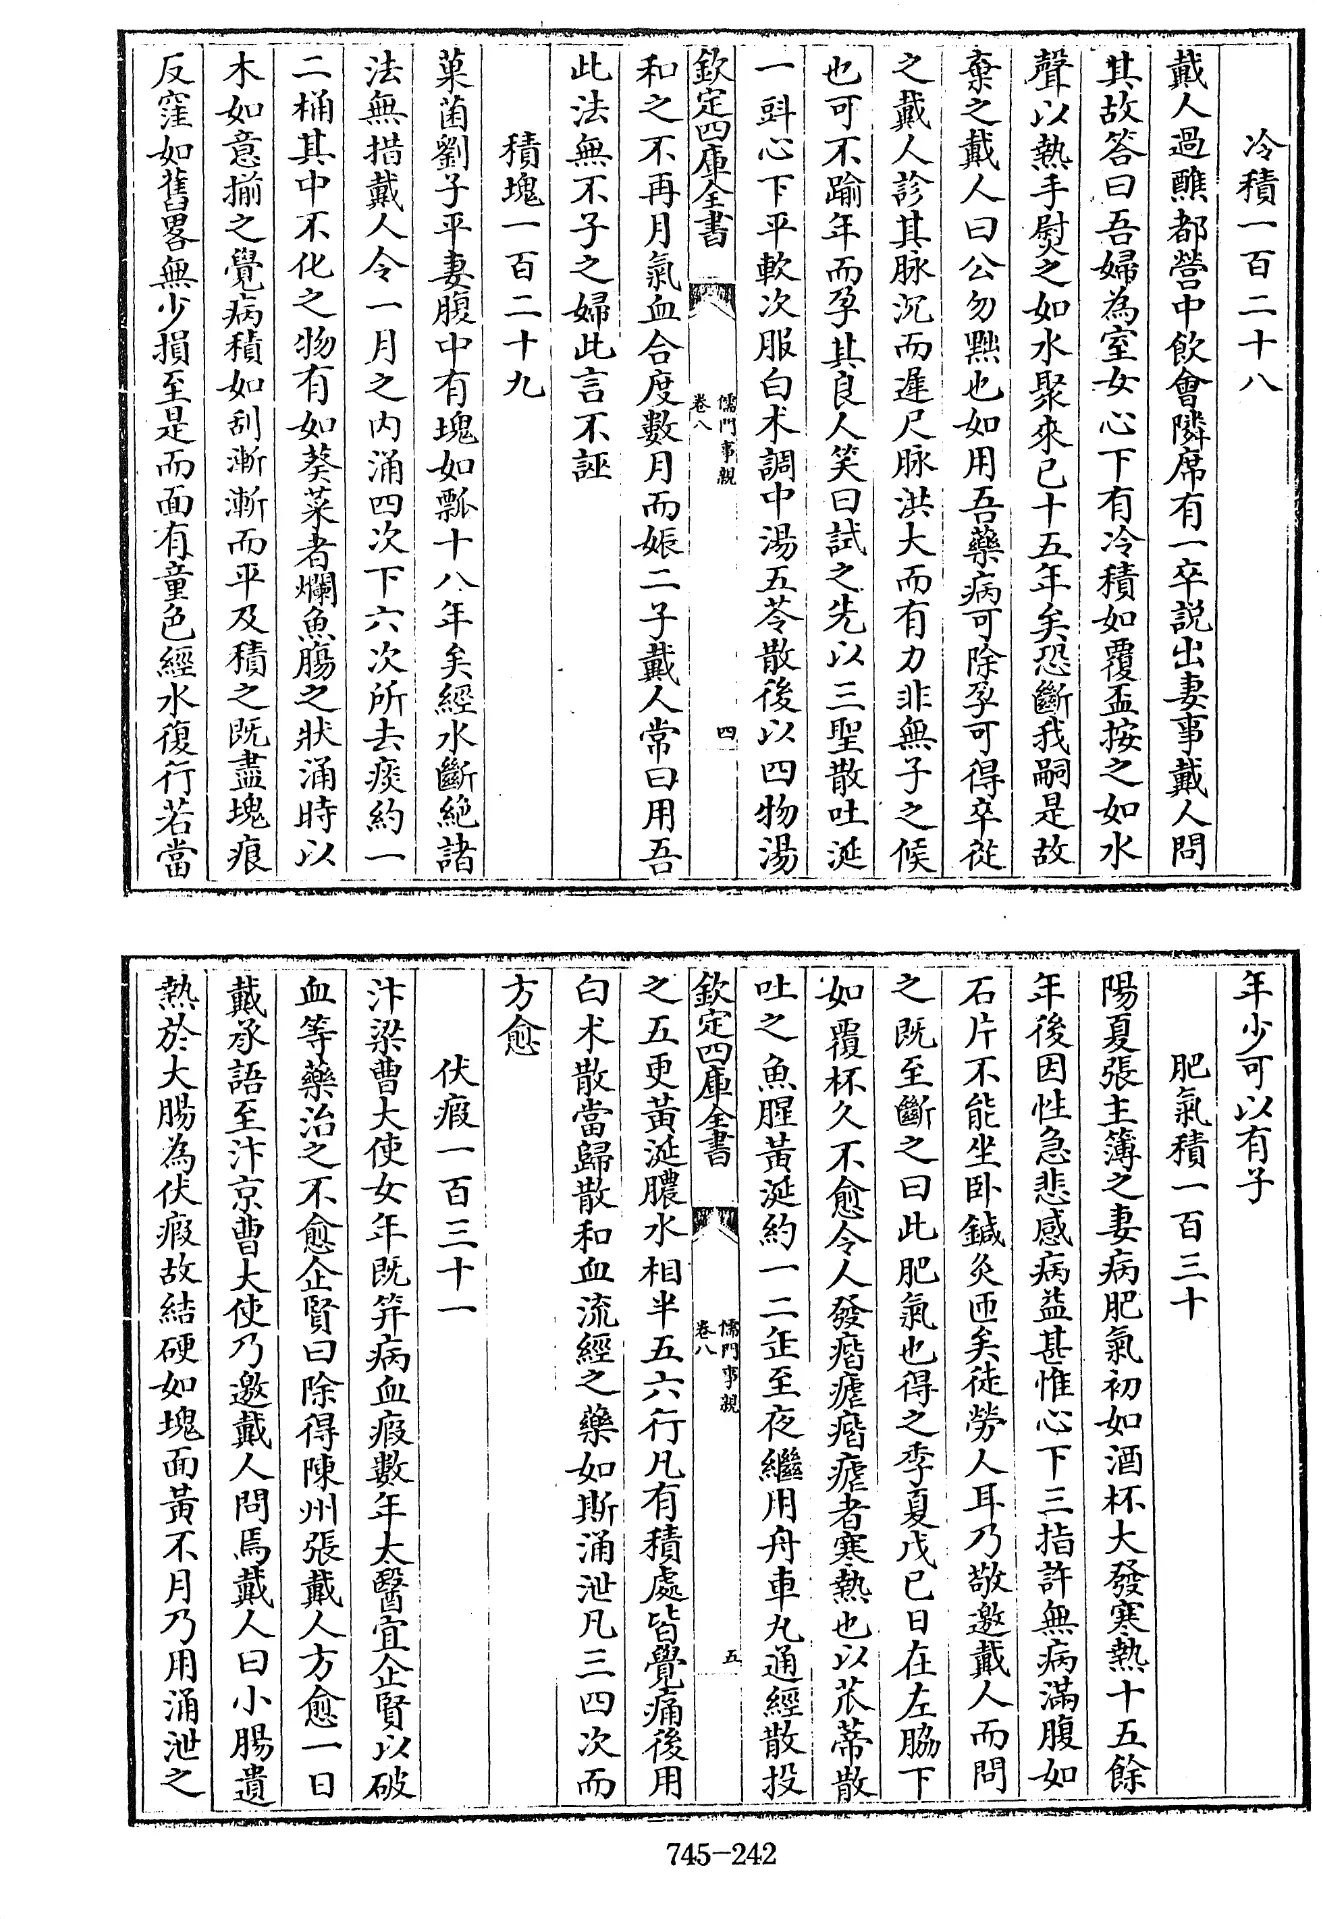 冷積一百二十八
戴人過醮都營中飲會隣席有一卒説出妻事戴人問
其故答曰吾婦為室女心下有冷積如覆盃按之如水
聲以熱手熨之如水聚來已十五年矣恐斷我嗣是故
棄之戴人曰公勿黜也如用吾藥病可除孕可得卒從
之戴人診其脉沉而遲尺脉洪大而有力非無子之候
也可不踰年而孕其良人笑曰試之先以三聖散吐涎
一㪷心下平軟次服白术調中湯五苓散後以四物湯
欽定四庫全書
儒門事親
卷八
四
和之不再月氣血合度數月而娠二子戴人常曰用吾
此法無不子之婦此言不誣
積塊一百二十九
菓菌劉子平妻腹中有塊如瓢十八年矣經水斷絶諸
法無措戴人令一月之内涌四次下六次所去痰約一
二桶其中不化之物有如葵菜者爛魚腸之狀涌時以
木如意揃之覺病積如刮漸漸而平及積之既盡塊痕
反窪如舊畧無少損至是而面有童色經水復行若當
年少可以有子
肥氣積一百三十
陽夏張主簿之妻病肥氣初如酒杯大發寒熱十五餘
年後因性急悲感病益甚惟心下三指許無病滿腹如
石片不能坐卧鍼灸匝矣徒勞人耳乃敬邀戴人而問
之既至斷之曰此肥氣也得之季夏戊已日在左脇下
如覆杯久不愈令人發痎瘧痎瘧者寒熱也以苽蒂散
吐之魚腥黃涎約一二缶至夜繼用舟車丸通經散投
欽定四庫全書
儒門事親
卷八
五
之五更黃涎膿水相半五六行凡有積處皆覺痛後用
白术散當歸散和血流經之藥如斯涌泄凡三四次而
方愈
伏瘕一百三十一
汴梁曹大使女年既笄病血瘕數年太醫宜企賢以破
血等藥治之不愈企賢曰除得陳州張戴人方愈一日
戴承語至汴京曹大使乃邀戴人問焉戴人曰小腸遺
熱於大腸為伏瘕故結硬如塊面黃不月乃用涌泄之
745-242